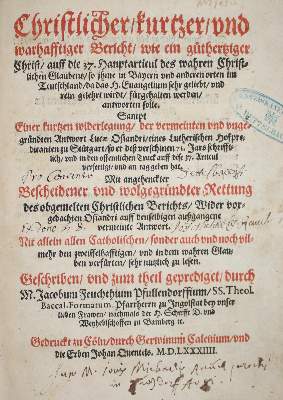 Christlicher/kurtzer/vnd
warhafftiger Bericht/wie ein gůthertziger
Christ/auff die 37. Hauptartickel des wahren Christ-
lichen Glaubens/so jhme in Bayern vnd anderen orten im
Teutschland/da das H. Euangelium sehr geliebt/vnd
rein gelehrt wirdt/fürgehalten werden/
antworten solle.
Sampt
Einer kurtzen widerlegung/der vermeinten vnd vnge-
gründten Antwort Luce Osiandri/eines Lutherischen Hofpre-
dicanten zu Stůtgart/so er deß verschinen 76. Jars schrifft-
lich/vnd in den offentlichen Truck auff dise 37. Articul
verfertigt/vnd an tag geben hat.
Mit angehenckter
Bescheidener vnd wolgegründter Rettung
des obgemelten Christlichen Berichts/Wider vor-
gedachten Osiandri auff denselbigen außgangene
vermeinte Antwort.
Nit allein allen Catholischen/sonder auch vnd noch vil-
mehr den zweiffelhafftigen/vnd in dem wahren Glau-
ben verfürten/sehr nutzlich zu lesen.
Geschriben/vnd zum theil geprediget/durch
M. Jacobum Feuchthium Pfullendorffium/SS. Theol.
Baccal. Formatum. Pfarrherrn zu Ingolstat bey vnser
lieben Frawen/nachmals der H. Schrifft D. vnd
Weyhbischoffen zu Bamberg ec.
Gedruckt zu Cöln/durch Gerwinum Calenium/vnd
die Erben Johan Quentels. M.D.LXXXIIII.